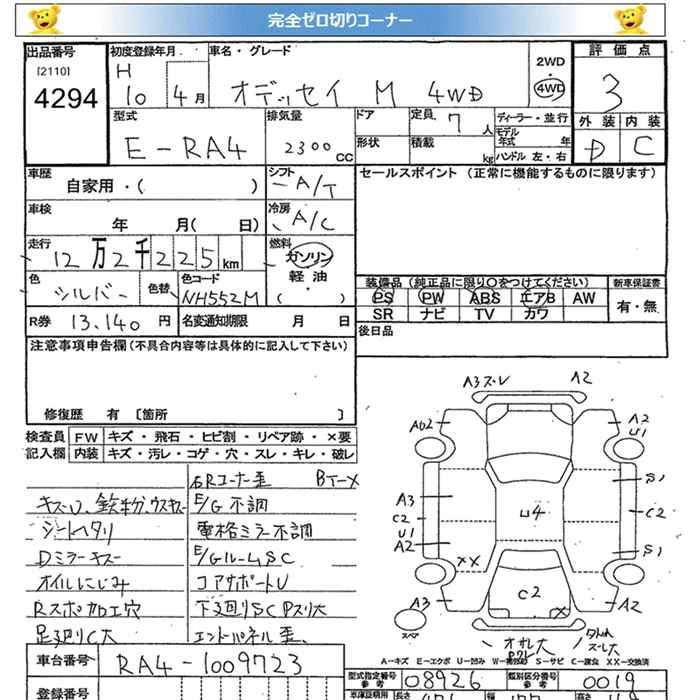 完全ゼロ切りコーナー
出品番号
[2110]
4294
初度登録年月
H
10 4月
車名・グレード
オデッセイ M 4WD
2WD
・
4WD
評価点
3
外装 内装
D C
型式
E-RA4
排気量
2300 CC
ドア
形状
定員 7 人
積載 kg
ディーラー・並行
モデル年式 年
ハンドル 左・右
車歴
自家用・( )
シフト
A/T
セールスポイント (正常に機能するものに限ります)
車検
年 月( 日)
冷房
A/C
走行
12万2千225km
燃料
ガソリン
・
軽油
( )
色
シルバー
色替
色コード
NH552M
装備品 (純正品に限り○をつけてください)
PS PW ABS エアB AW
SR ナビ TV カワ
新車保証書
有・無
R券 13,140 円
名変通知期限 月 日
後日品
注意事項申告欄 (不具合内容等は具体的に記入して下さい)
修復歴 有 〔箇所 〕
検査員記入欄
FW キズ・飛石・ヒビ割・リペア跡・×要
内装 キズ・汚レ・コゲ・穴・スレ・キレ・破レ
右Rコーナー歪 BT-X
キズU、鉄粉、ウスキズ
E/G不調
シートヘタリ
電格ミラー不調
Dミラーキズ
E/GルームSC
オイルにじみ
コアサポートU
Rスポ加工穴
下廻りSC Pスリ大
足廻りC大
エンドパネル歪
A3ズレ A2
AU2
A2
U1
A3
C2
U1
A2
S1
C2
S1
U4
XX
C2
X
A3
A2
スペア
A-キズ E-エクボ U-凹み W-補修跡 S-サビ C-腐食 XX-交換済
車台番号
RA4-1009723
型式指定番号
参考
08926
類別区分番号
参考
0019
登録番号
車庫証明用
長さ
幅
高さ